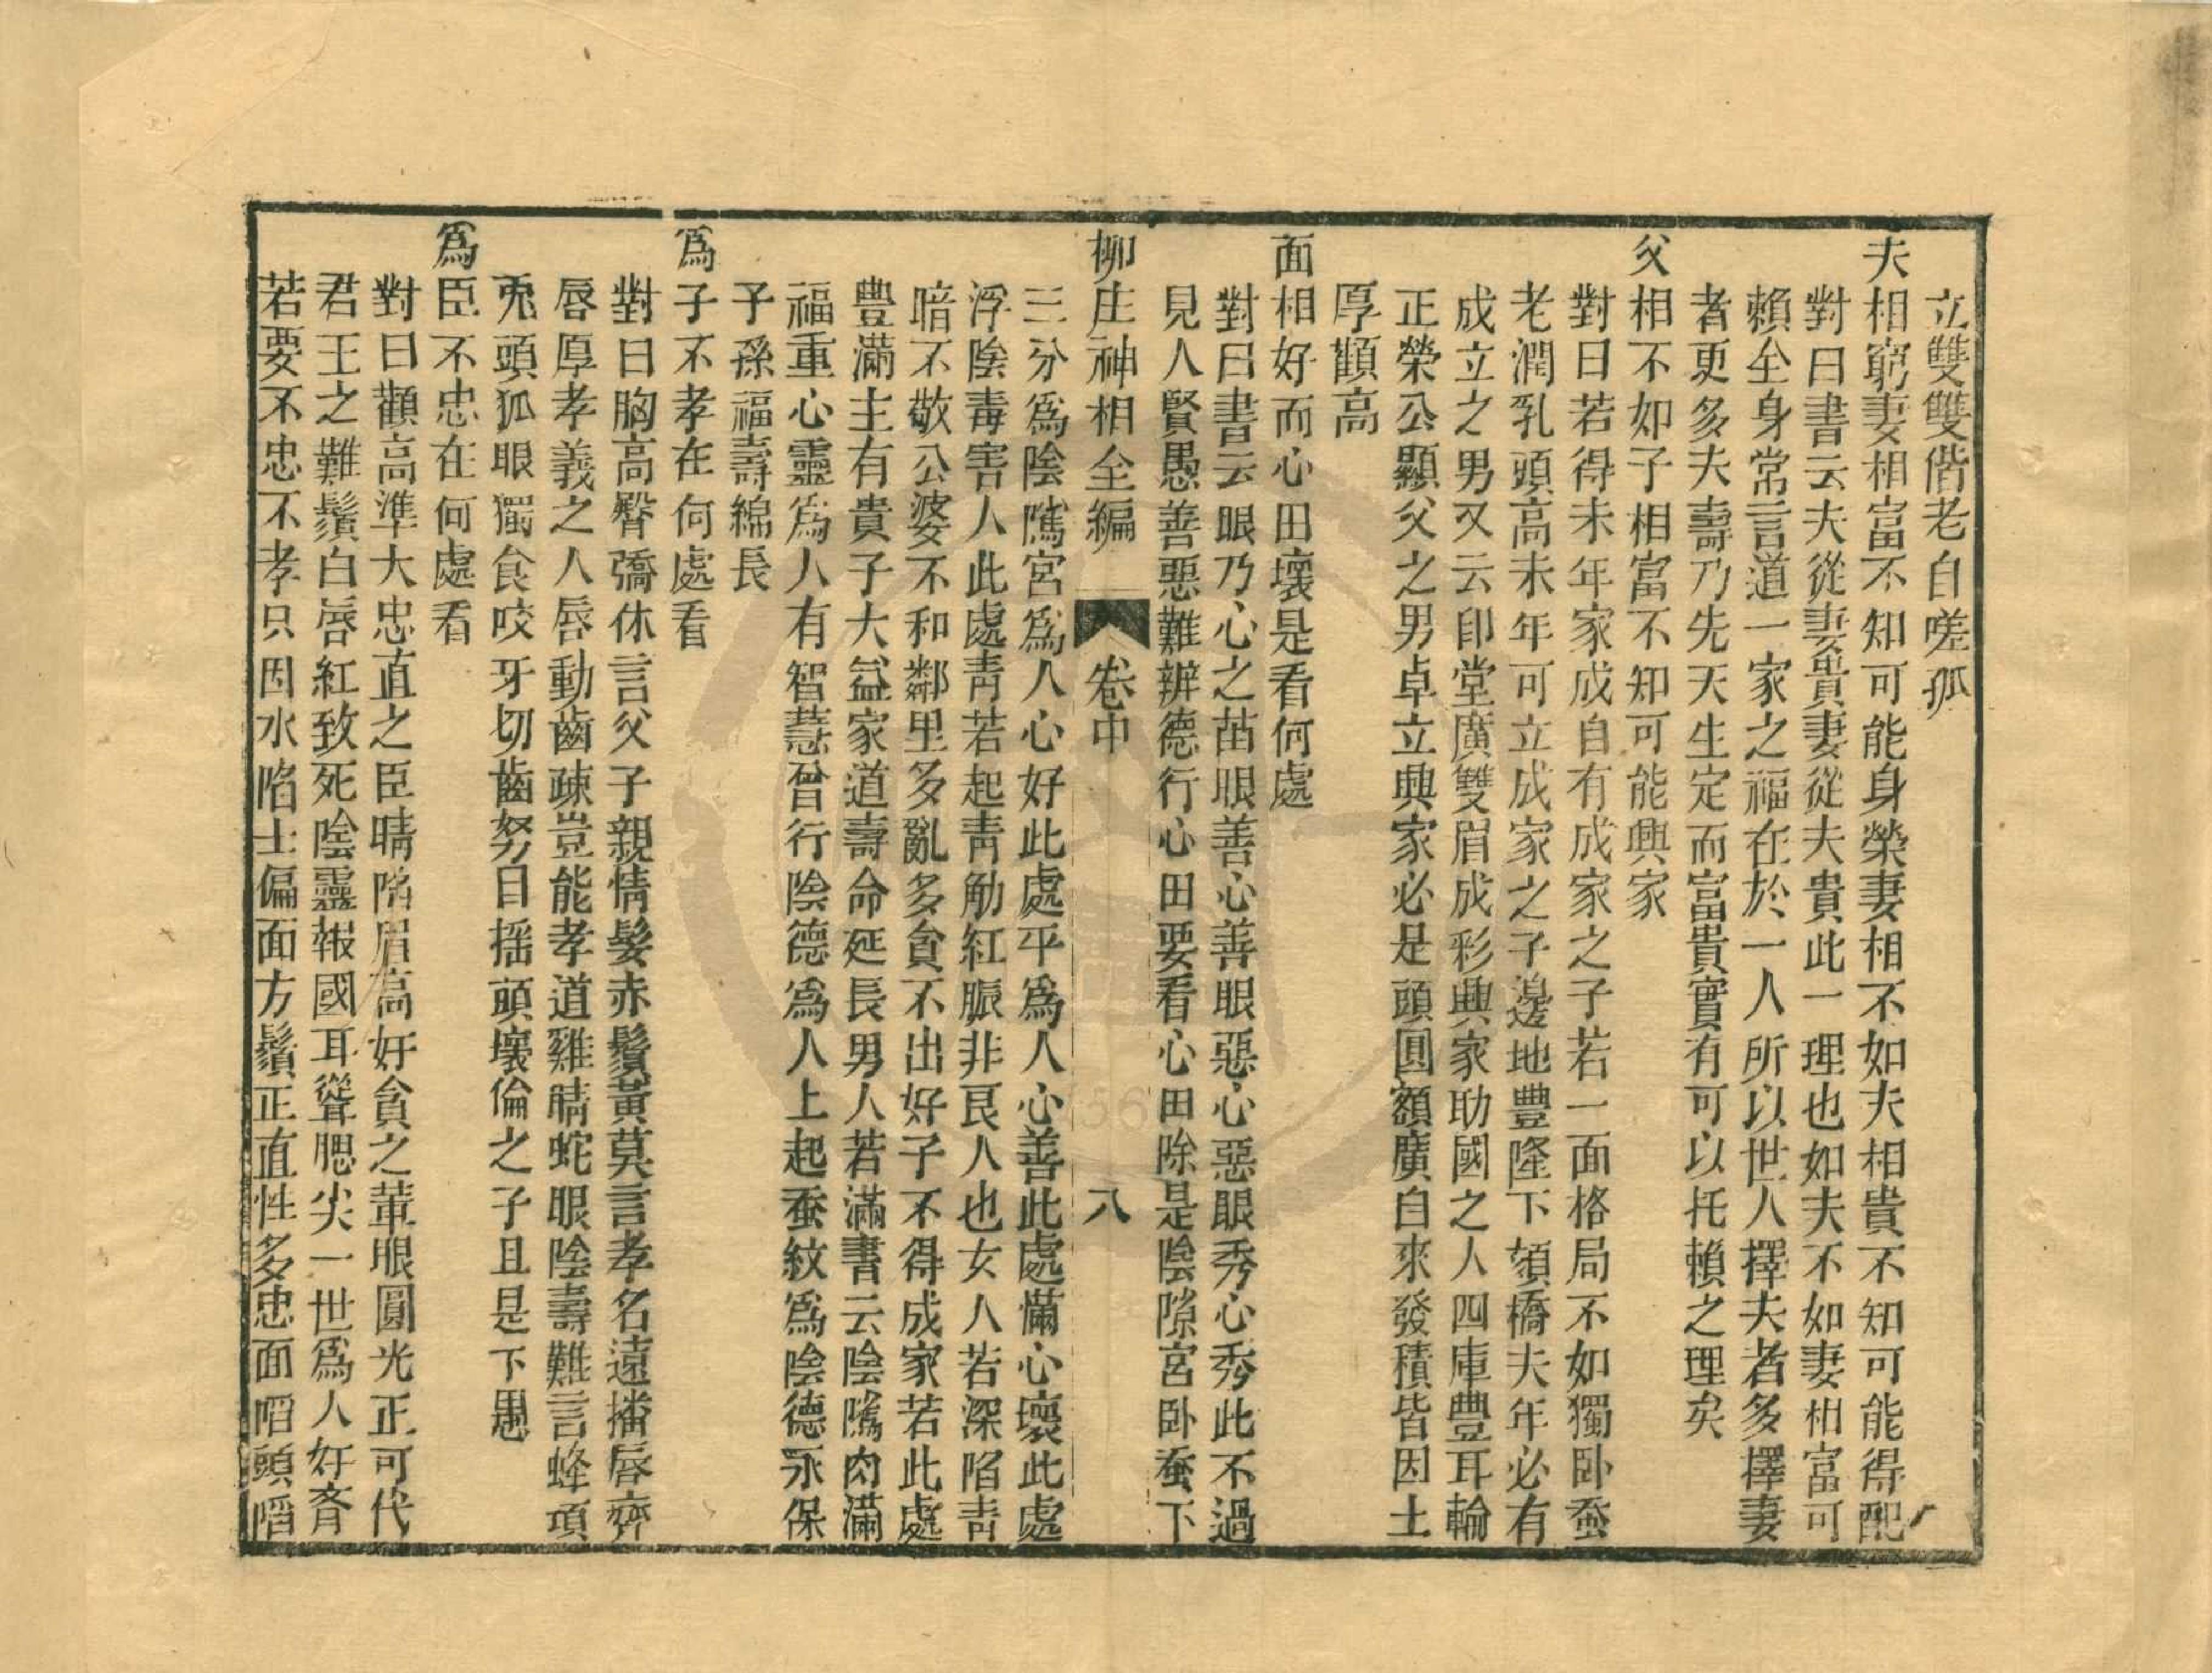 立雙雙偕老自嗟孤
夫相窮妻相富不知可能身榮妻相不如夫相貴不知可能得配
對曰書云夫從妻貴妻從夫貴此一理也如夫不如妻相富可
賴全身常言道一家之福在於一人所以世人擇夫者多擇妻
者更多夫壽乃先天生定而富貴實有可以托賴之理矣
父相不如子相富不知可能興家
對曰若得未年家成自有成家之子若一面格局不如獨卧蚕
老潤乳頭高末年可立成家之子邊地豐隆下頦橋夫年必有
成立之男又云印堂廣雙眉成彩興家助國之人四庫豐耳輪
正榮公顯父之男卓立興家必是頭圓額廣自來發積皆因土
厚顴高
面相好而心田壞是看何處
對曰書云眼乃心之苗眼善心善眼惡心惡眼秀心秀此不過
見人賢愚善惡難辨德行心田要看心田除是陰隲宮卧蚕下
柳庄神相全編 卷中 八
三分為陰隲宮為人心好此處平為人心善此處滿心壞此處
浮陰毒害人此處靑若起靑觔紅脤非艮人也女人若深陷靑
暗不敬公婆不和鄰里多亂多貪不出好子不得成家若此處
豐滿主有貴子大益家道壽命延長男人若滿書云陰隲肉滿
福重心靈為人有智慧曾行陰德為人上起蚕紋為陰德永保
子孫福壽綿長
為子不孝在何處看
對曰胸高臀彍休言父子親情髮赤鬚黃莫言孝名遠播唇齊
唇厚孝義之人唇動齒疎豈能孝道雞睛蛇眼陰壽難言蜂項
兎頭狐眼獨食咬牙切齒努目揺頭壞倫之子且是下愚
為臣不忠在何處看
對曰顴高準大忠直之臣睛陷眉高奸貪之輩眼圓光正可代
君王之難鬚白唇紅致死陰靈報國耳聳腮尖一世為人奸吝
若要不忠不孝只因水陷土偏面方鬚正直性多忠面㗖頭㗖